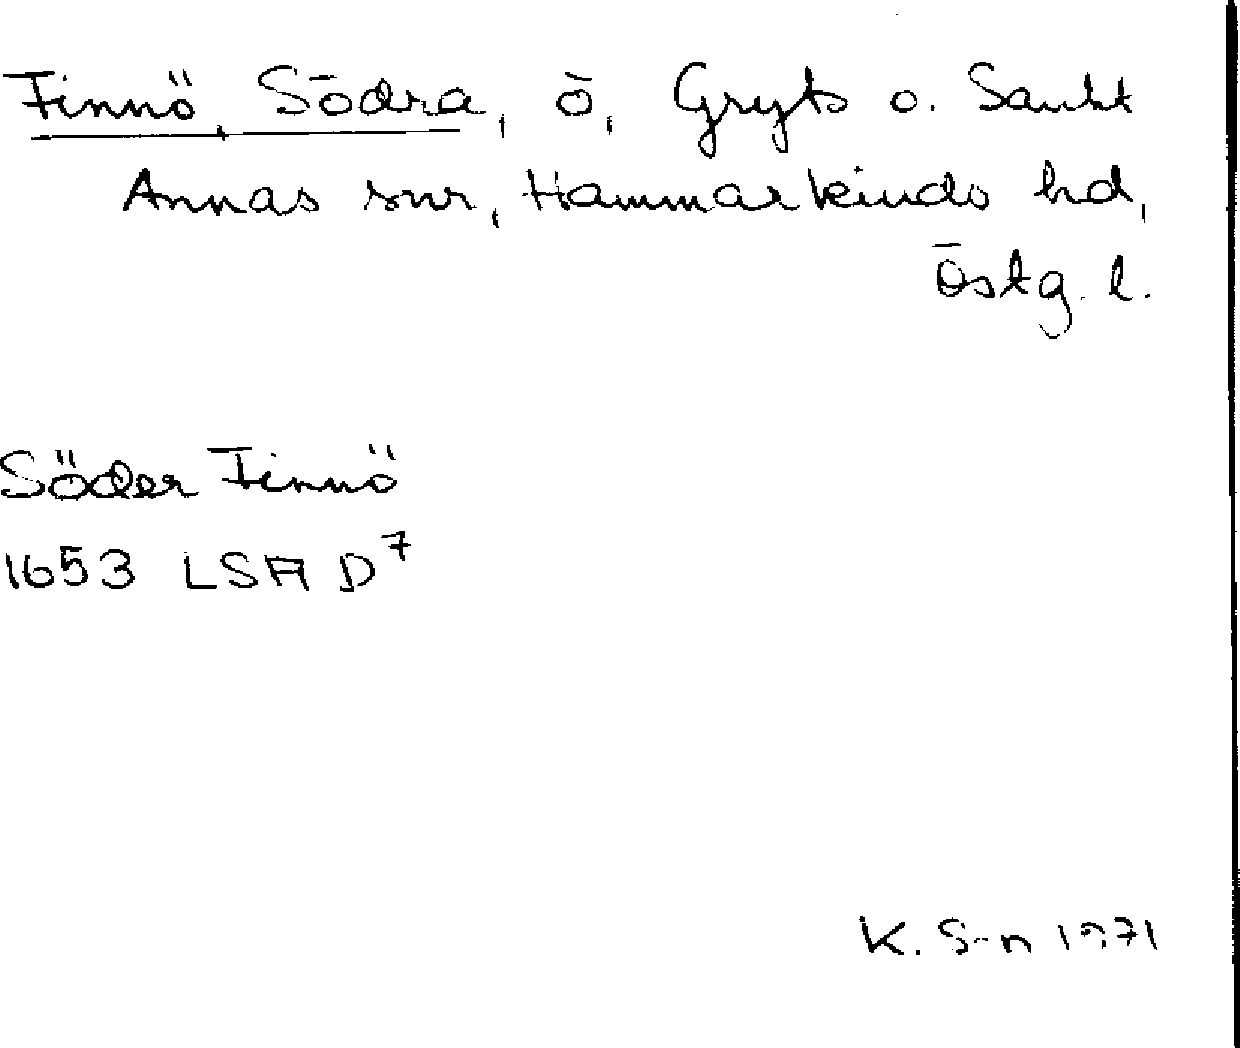 Finnö, Södra, ö, Gryts o. Sankt
Annas snr, Hammarkinds hd,
Östg. l.
Söder Finnö
1653 LSA D⁷
K. S-n 1971